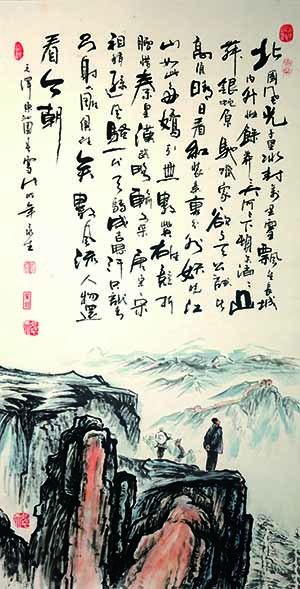 北国风光千里冰封万里雪飘望长城
内外惟馀莽莽大河上下顿失滔滔山
舞银蛇原驰蜡象欲与天公试比
高须晴日看红装素裹分外妖娆江
山如此多娇引无数英雄竞折
腰惜秦皇汉武略输文采唐宗宋
祖稍逊风骚一代天骄成吉思汗只识弯
弓射大雕俱往矣数风流人物还
看今朝
毛泽东沁园春雪